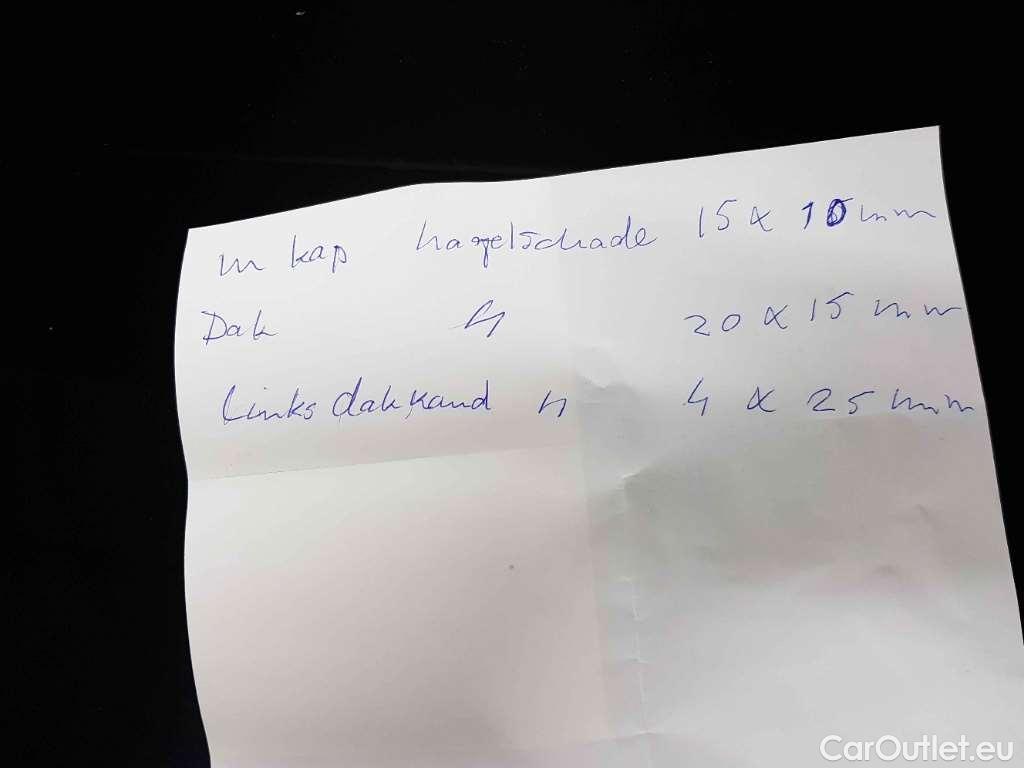 m kap hagelschade 15 x 10 mm
Dak " 20 x 15 mm
Links dakkand " 4 x 25 mm
CarOutlet.eu